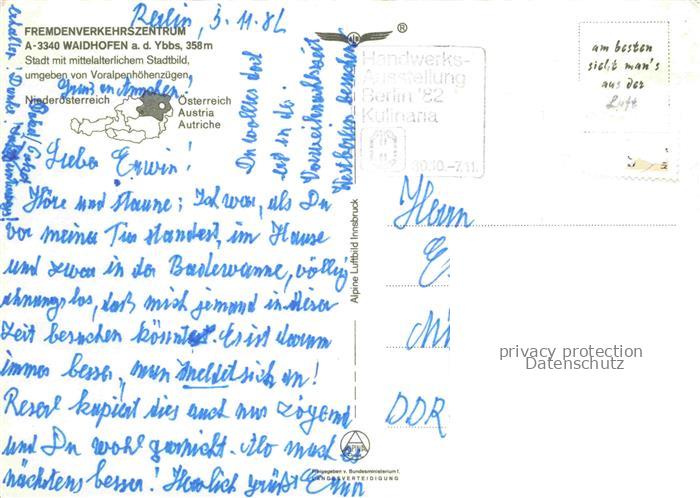 Berlin, 3.11.82
FREMDENVERKEHRSZENTRUM
A-3340 WAIDHOFEN a. d. Ybbs, 358 m
Stadt mit mittelalterlichem Stadtbild,
umgeben von Voralpenhöhenzügen,
Niederösterreich
Österreich
Austria
Autriche
Gruß an Ännchen!
Lieber Erwin!
Höre und staune: Ich war, als Du
vor meiner Tür standest, im Hause
und zwar in der Badewanne, völlig
ahnungslos, daß mich jemand in dieser
Zeit besuchen könnte. Es ist darum
immer besser, man meldet sich an!
Reserl kapiert dies auch nur zögernd
und Du wohl garnicht. Also mach es
nächstens besser! Herzlich grüßt Erwin
Du wolltest doch
erst in der
Vorweihnachtszeit
Westberlin besuchen
erhalten! Danke
Alpine Luftbild Innsbruck
Freigegeben v. Bundesministerium f.
LANDESVERTEIDIGUNG
®
Handwerks-
Ausstellung
Berlin '82
Kulinaria
30.10.-7.11.
am besten
sieht man's
aus der
Luft
Herrn
E
Mi
DDR
privacy protection
Datenschutz